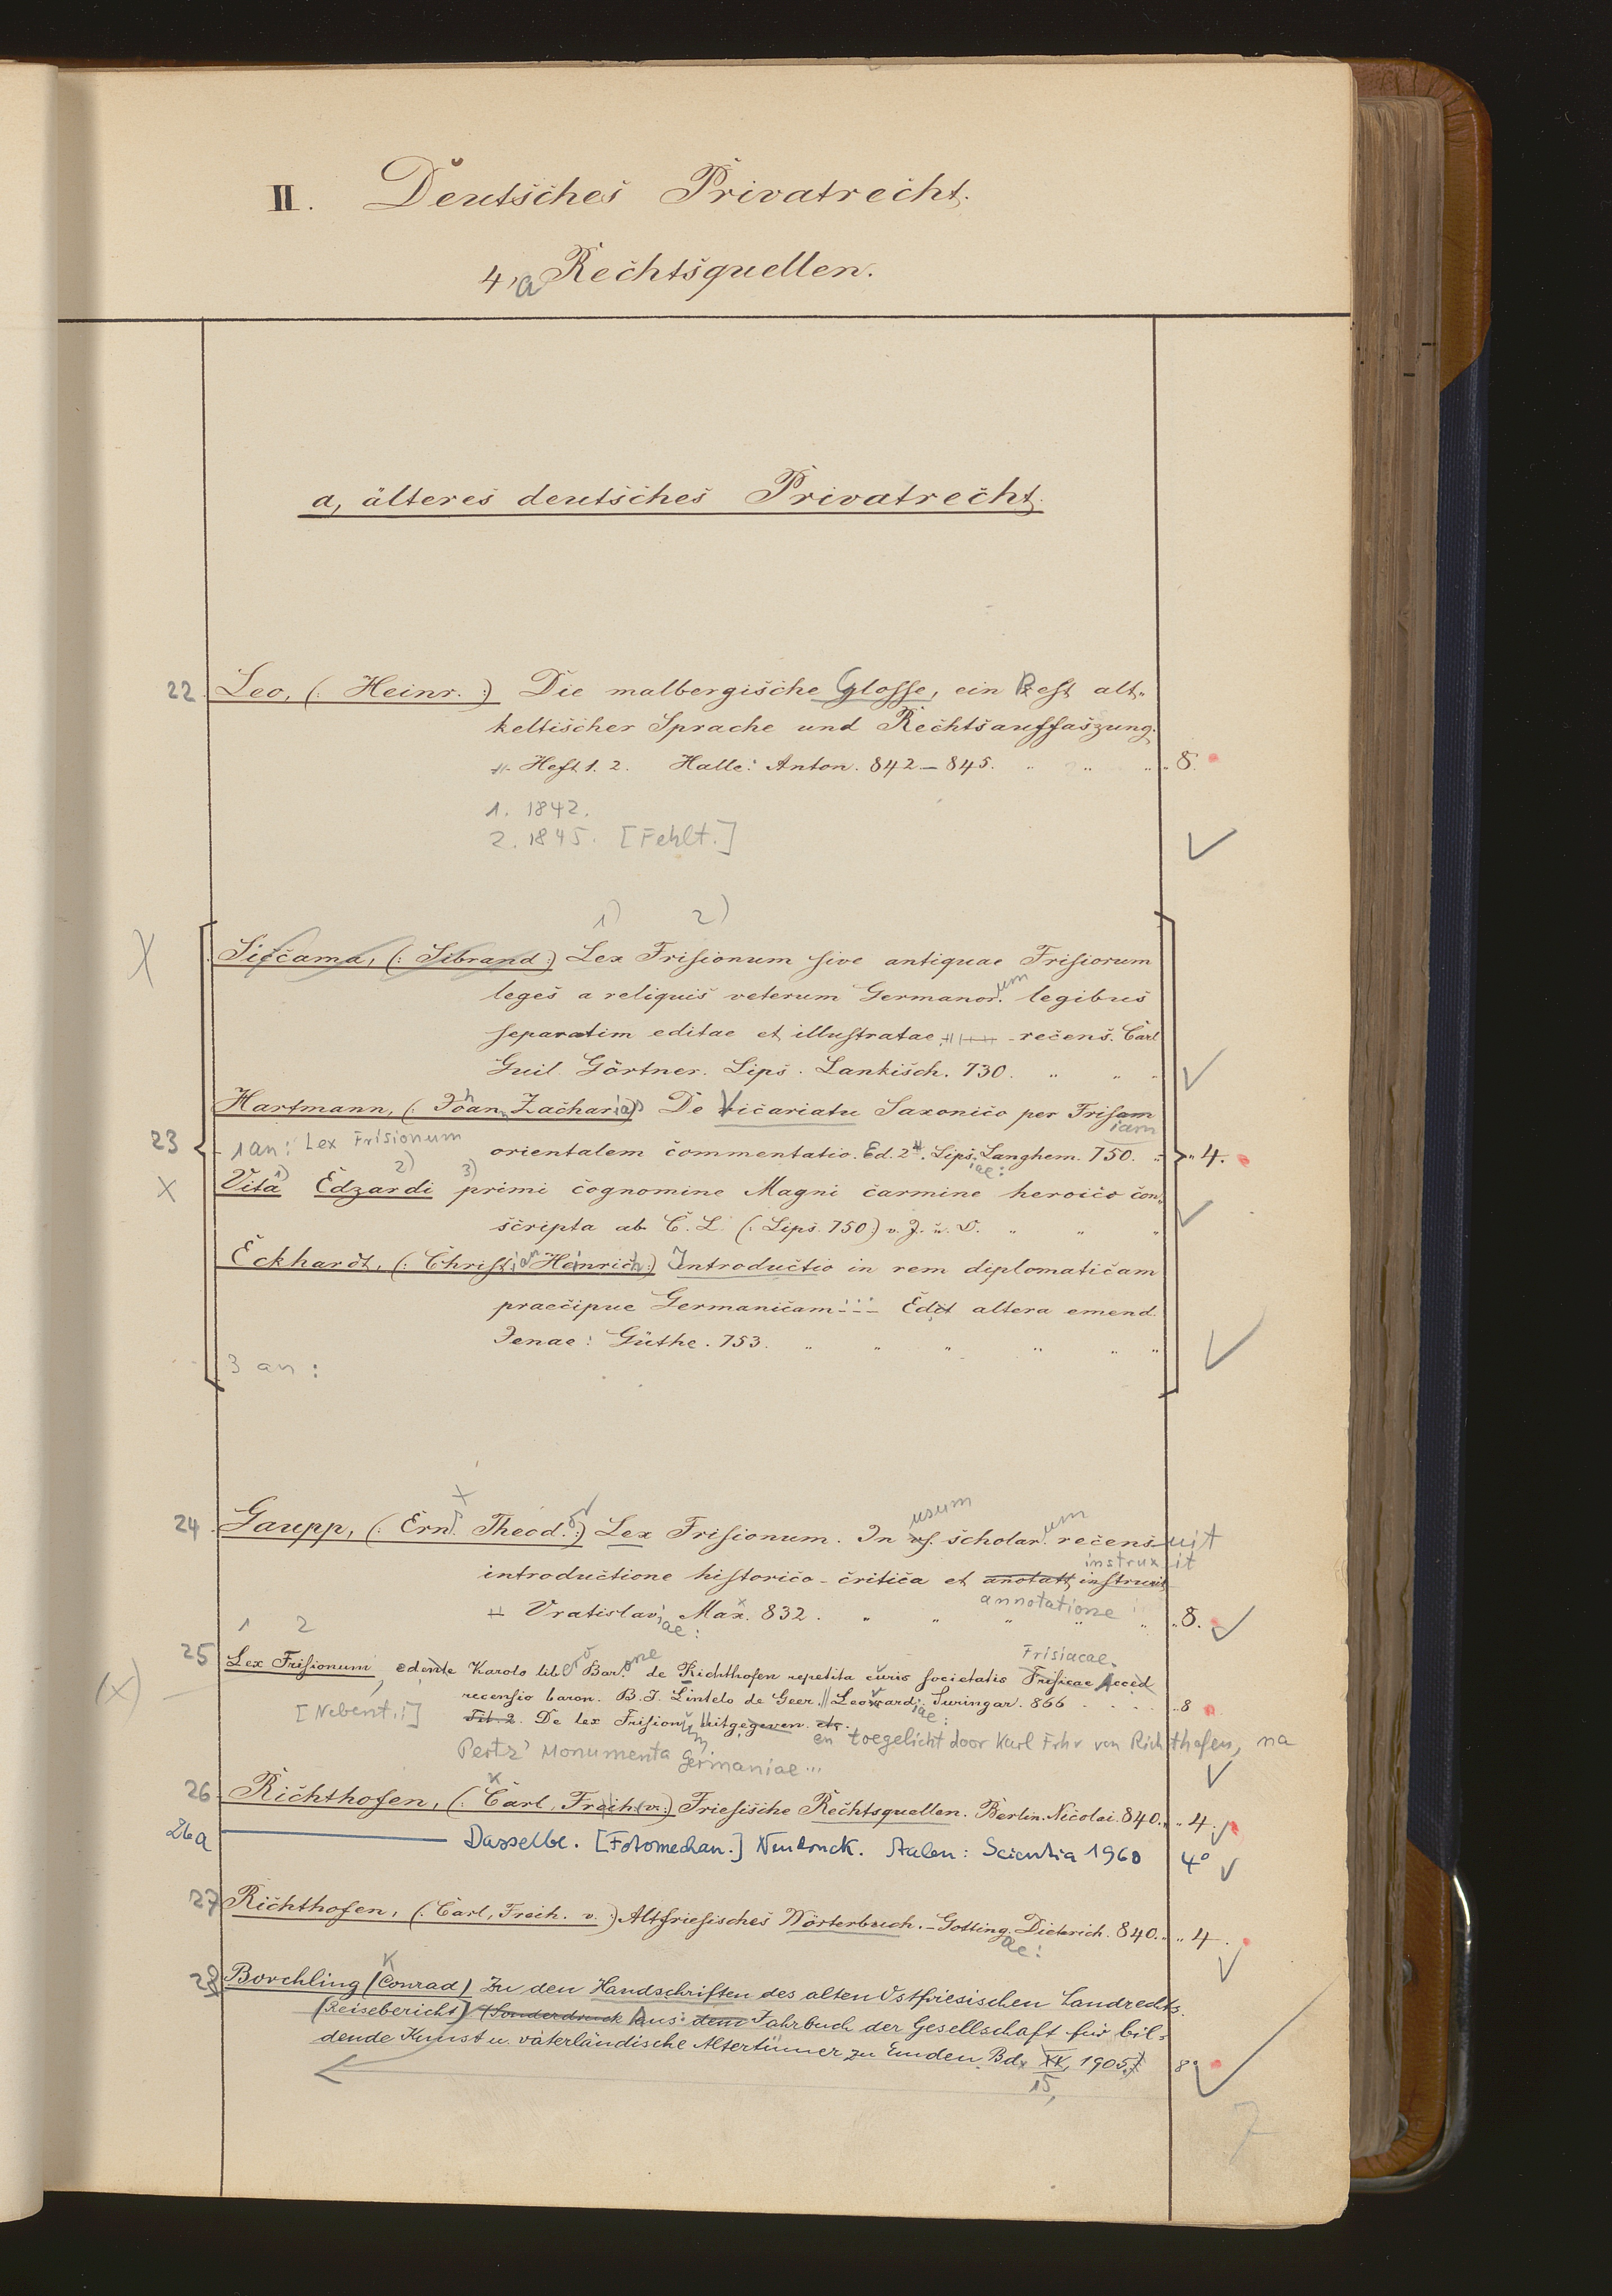 II. Deutsches Privatrecht.
4, a Rechtsquellen.
a, älteres deutsches Privatrecht.
22. Leo, (: Heinr. :) Die malbergische Glosse, ein Rest alt-
keltischer Sprache und Rechtsauffaszung.
Heft 1. 2. Halle: Anton. 842–845. " " " 8.
1. 1842.
2. 1845. [Fehlt.]
1) 2)
X Siccama, (: Sibrand :) Lex Frisionum sive antiquae Frisiorum
leges a reliquis veterum Germanor.um legibus
separatim editae et illustratae recens. Carl
Guil. Görtner. Lips. Lankisch. 730. " " "
Hartmann, (: Johan Zacharias De Vicariatu Saxonico per Frisam
iam
23 1 an: Lex Frisionum orientalem commentatio. Ed. 2. Lips. Langhem. 750. " " 4.
iae:
1) 2) 3)
X Vita Edzardi primi cognomine Magni carmine heroico con-
scripta ab C. L. (: Lips. 750 :) v. J. u. D. " " "
Eckhardt, (: Christian Heinrich :) Introductio in rem diplomaticam
praecipue Germanicam ... Edit altera emend.
Jenae: Güthe. 753. " " " " " "
3 an:
24. Gaupp, (: Ernst Theod. :) Lex Frisionum. In us. usum scholar.um recensuit
instruxit
introductione historico-critica et anotatt instruxit
annotatione
Vratislaviae: Max. 832. " " " " " 8.
1 2
Frisiacae.
25 Lex Frisionum, edente Karolo libero Bar.one de Richthofen repetita curis societatis Frisicae Acced
(X) recensio baron. B. J. Lintelo de Geer. Leovardiae: Suringar. 866 . . . . 8
[Nebent.:] Tit. 2. De lex Frisionum uitgegeven etc.
en toegelicht door Karl Frhr von Richthofen, na
Pertz' Monumenta Germaniae ...
26 Richthofen, (: Carl, Freih. v. :) Friesische Rechtsquellen. Berlin. Nicolai. 840. " 4.
26a ——— Dasselbe. [Fotomechan.] Neudruck. Aalen: Scientia 1960 4°
27 Richthofen, (: Carl, Freih. v. :) Altfriesisches Wörterbuch. – Gotting. Dieterich. 840. " 4.
ae:
K
28 Borchling (Conrad) Zu den Handschriften des alten Ostfriesischen Landrechts.
(Reisebericht) (Sonderdruck Aus: dem Jahrbuch der Gesellschaft für bil-
dende Kunst u. vaterländische Altertümer zu Emden. Bd. XV, 1905.) 8°
15,
7